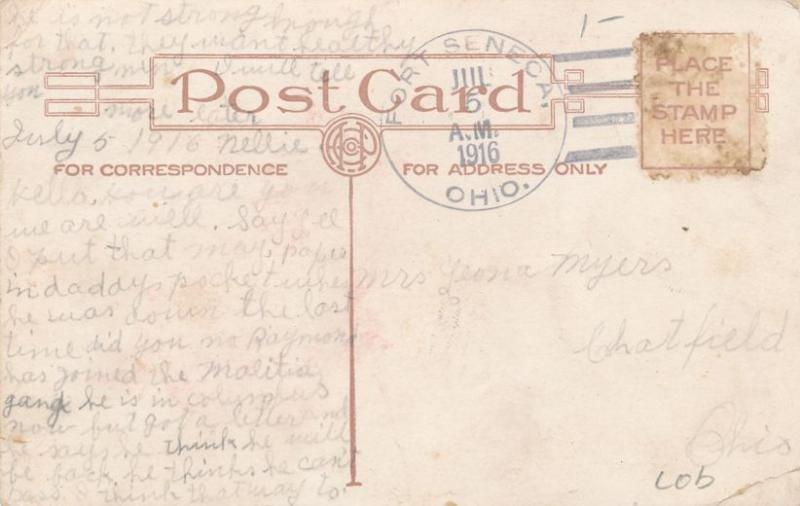 he is not strong enough
for that. they want healthy
strong men I will tell
you more later
July 5 1916 Nellie
Post Card
FORT SENECA,
JUL
5
A.M.
1916
OHIO.
1-
PLACE
THE
STAMP
HERE
FOR CORRESPONDENCE
FOR ADDRESS ONLY
Hello, how are you
we are well. Say
I put that may paper
in daddys pocket when
he was down the last
time did you no Raymond
has joined the Malitia
gang he is in columbus
now but got a letter and
he says he think he will
be back. he thinks he cant
pass I think that way to.
Mrs Leona Myers
Chatfield
Ohio
LOb